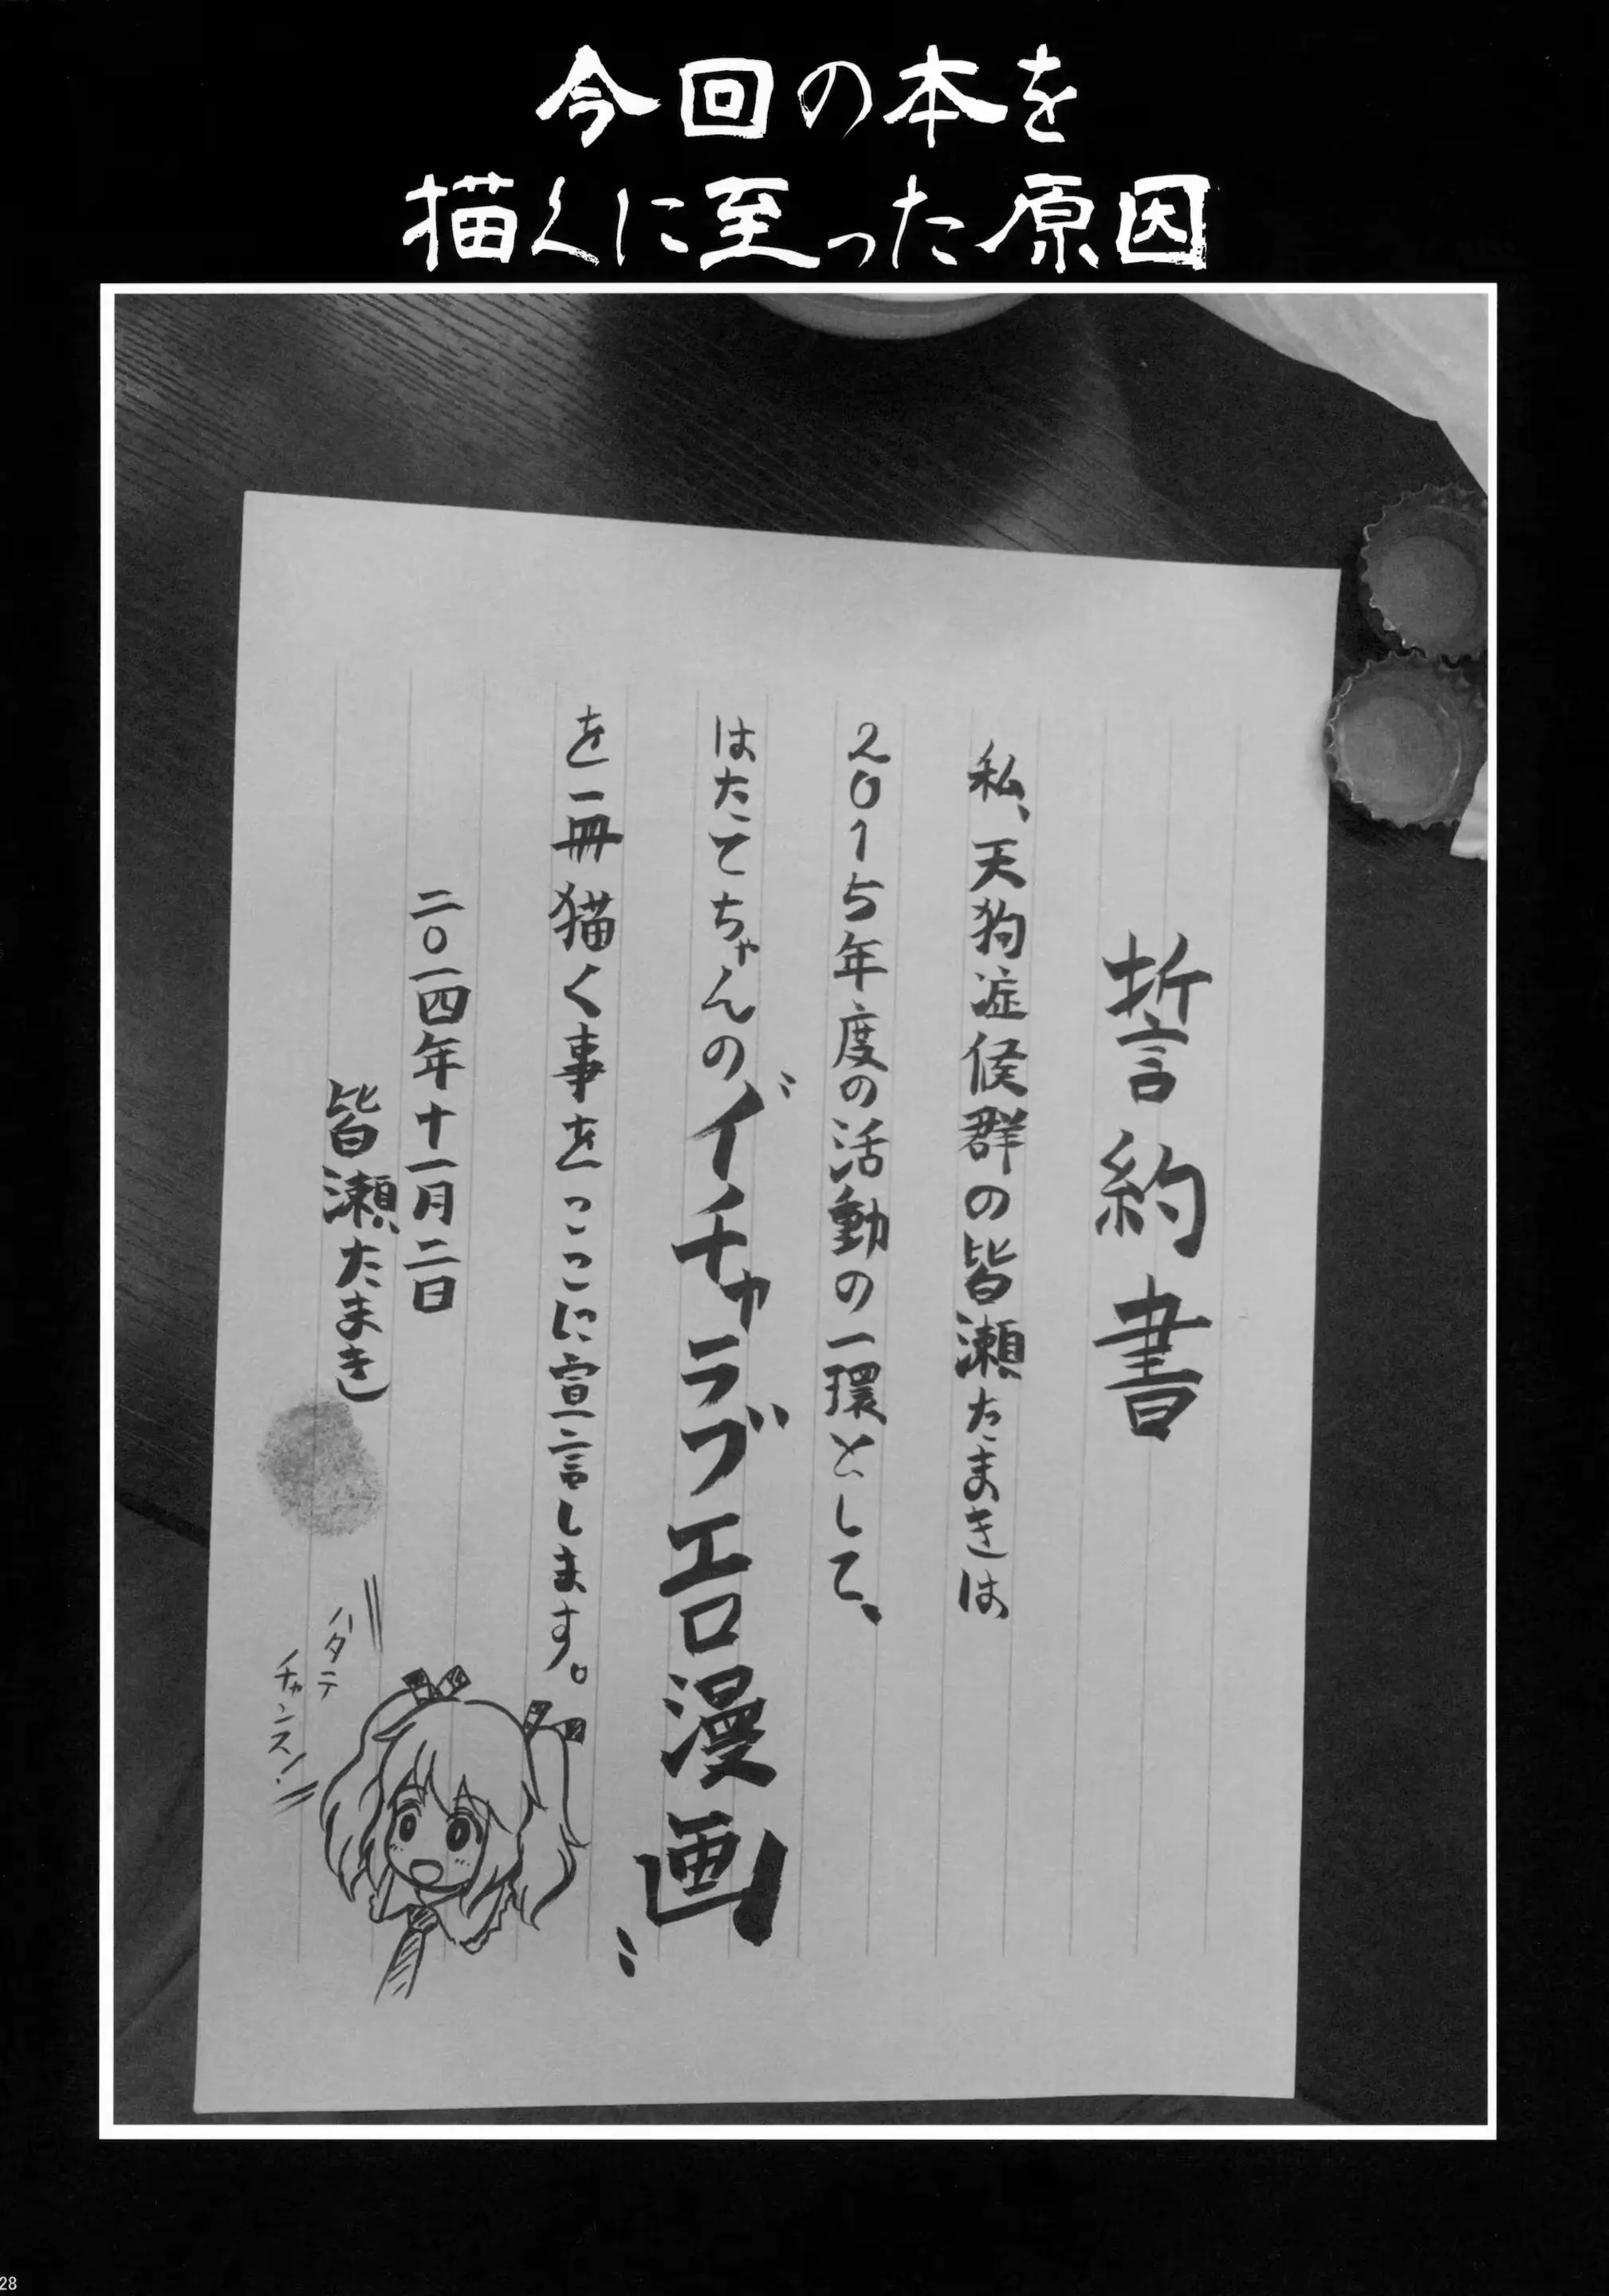 今回の本を
描くに至った原因
誓約書
私、天狗症候群の皆瀬たまきは
2015年度の活動の一環として、
はたてちゃんの゛イチャラブエロ漫画〟
を一冊猫く事をここに宣言します。
二〇一四年十一月二日
皆瀬たまき
ハタテ
チャンス!
28